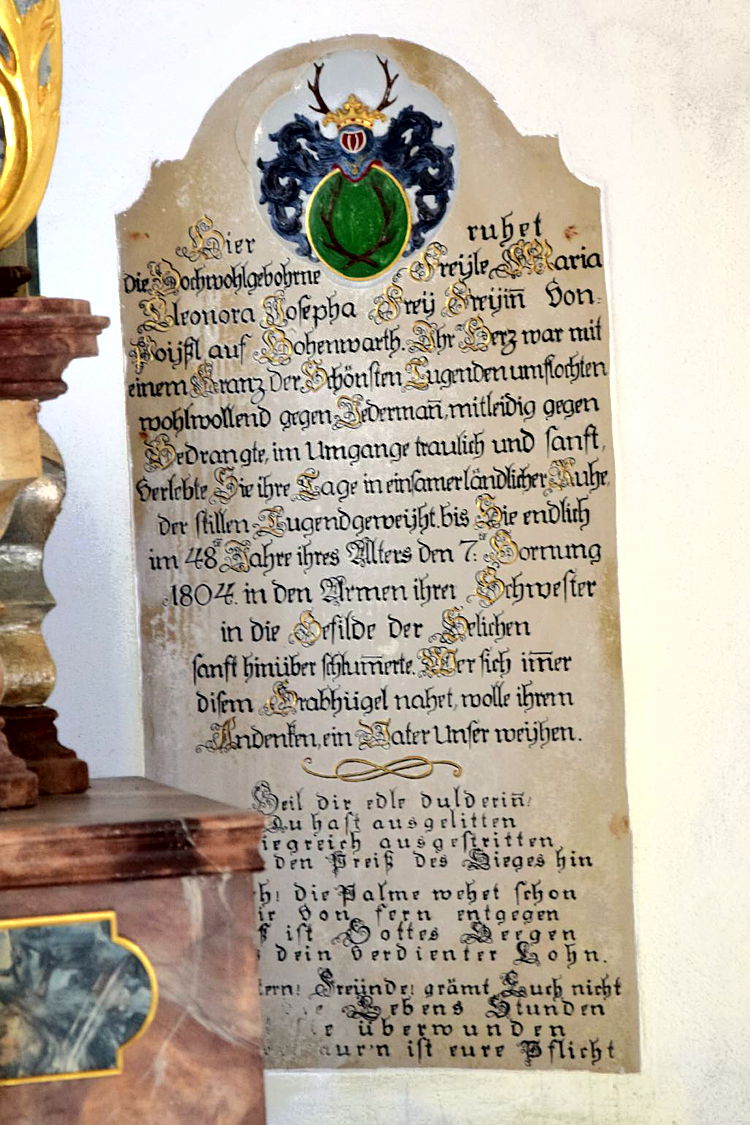 Hier ruhet
die Hochwohlgebohrne Freÿle Maria
Eleonora Josepha Freÿ Freÿin̄ Von
Poÿßl auf Hohenwarth. Ihr Herz war mit
einem Kranz Der Schönsten Tugenden umflochten
wohlwollend gegen Jederman̄, mitleidig gegen
Bedrangte, im Umgange traulich und sanft,
Verlebte Sie ihre Tage in einsamer ländlicher Ruhe,
der stillen Tugend geweÿht, bis Sie endlich
im 48.te Jahre ihres Alters den 7.te Hornung
1804. in den Armen ihrer Schwester
in die Gefilde der Selichen
sanft hinüber schlum̄erte. Wer sich im̄er
disem Grabhügel nahet, wolle ihrem
Andenken, ein Vater Unser weÿhen.
Heil dir edle dulderin̄!
Du hast ausgelitten
siegreich ausgestritten
den Preiß des Sieges hin
die Palme wehet schon
Von fern entgegen
ist Gottes Seegen
dein Verdienter Lohn.
Freünde! grämt Euch nicht
Lebens Stunden
überwunden
ist eure Pflicht